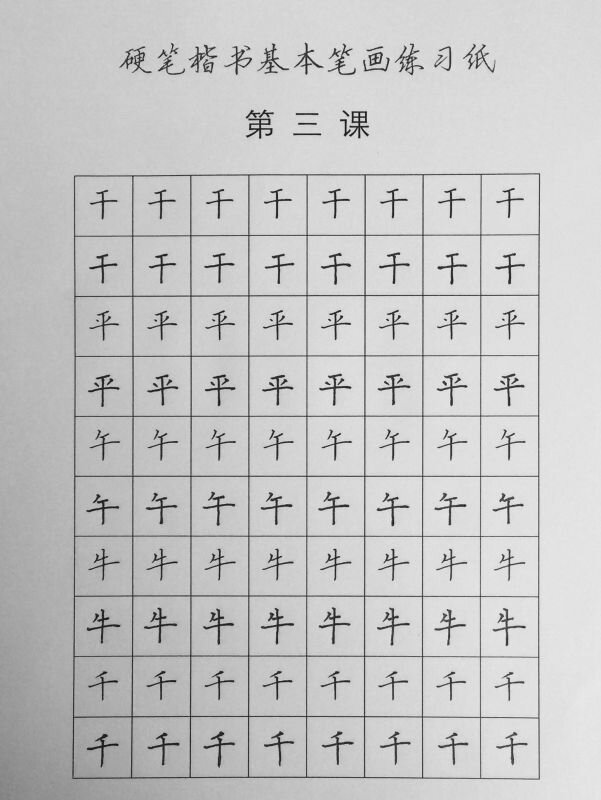 硬笔楷书基本笔画练习纸
第三课
干干干干干干干干
干干干干干干干干
平平平平平平平平
平平平平平平平平
午午午午午午午午
午午午午午午午午
牛牛牛牛牛牛牛牛
牛牛牛牛牛牛牛牛
千千千千千千千千
千千千千千千千千